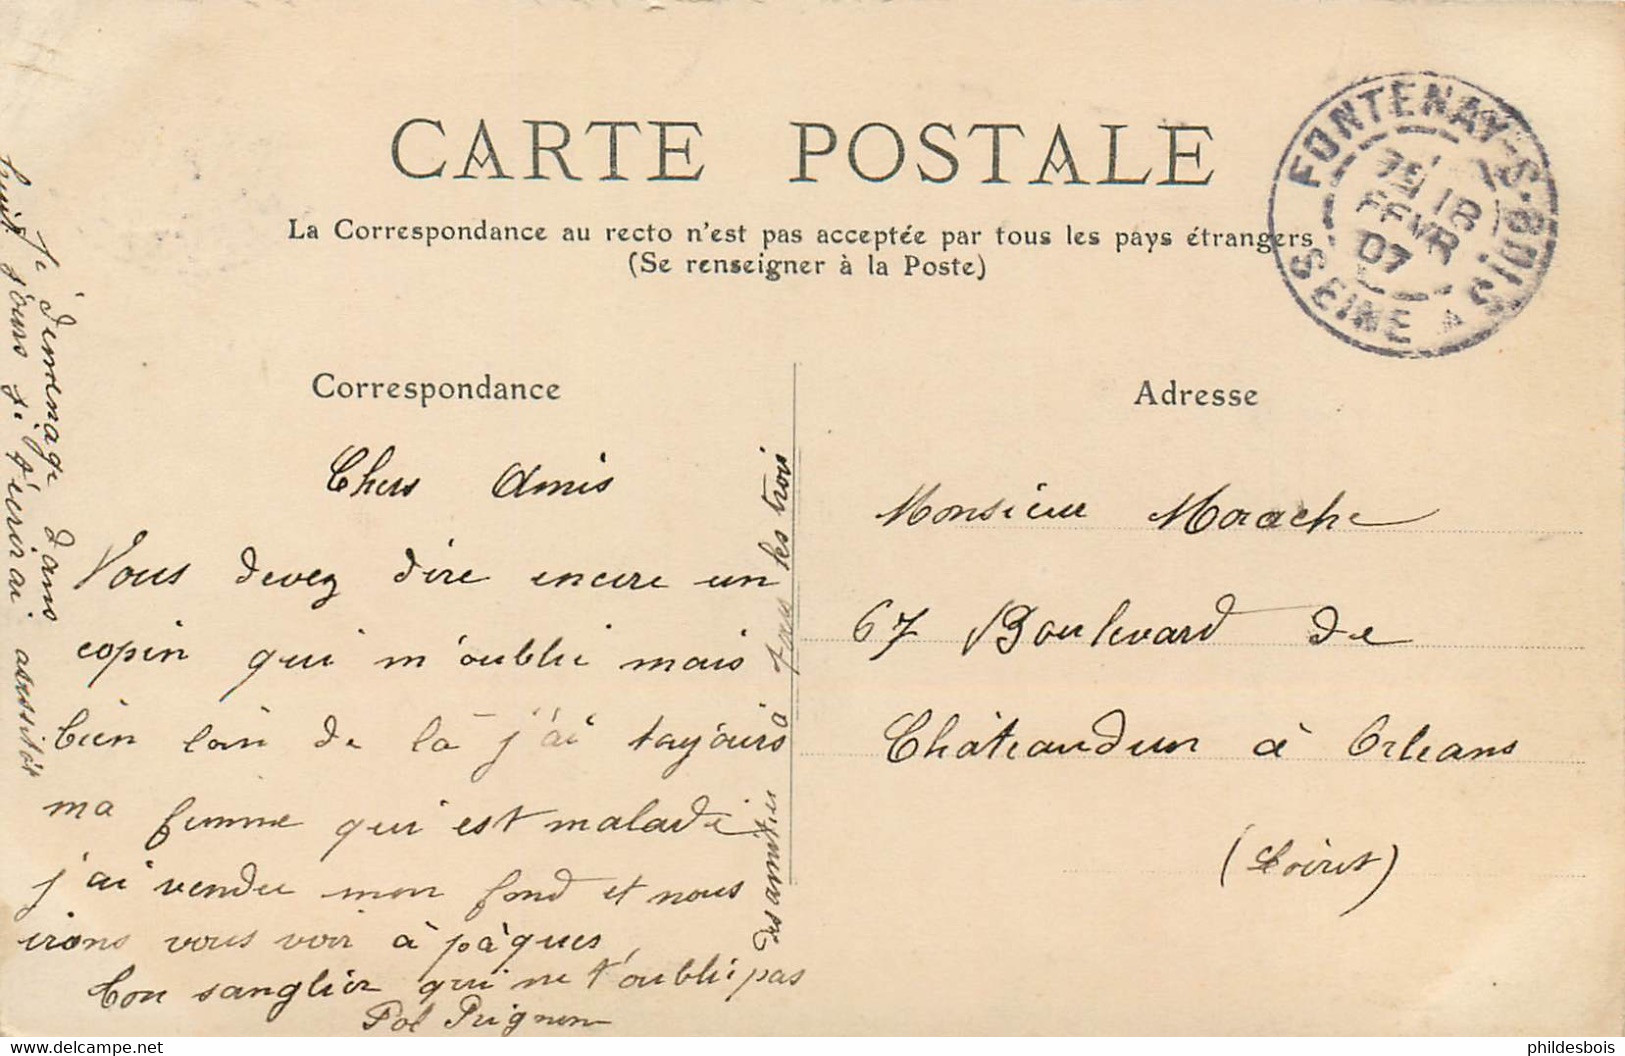 CARTE POSTALE
La Correspondance au recto n'est pas acceptée par tous les pays étrangers
(Se renseigner à la Poste)
FONTENAY-S-BOIS
18
FEVR
07
SEINE
Correspondance
Chers Amis
Vous devez dire encore un
copin qui m'oublie mais
bien loin de là j'ai toujours
ma femme qui est malade
j'ai vendu mon fond et nous
irons vous voir à pàques,
ton sanglier qui ne t'oublie pas
Pol Prignon
Je démenage dans
huit jours je t'écrirai aussitôt
Bes amitiés a tous les trois
Adresse
Monsieur Morache
67 Boulevard de
Châteaudun à Orleans
(Loiret)
phildesbois